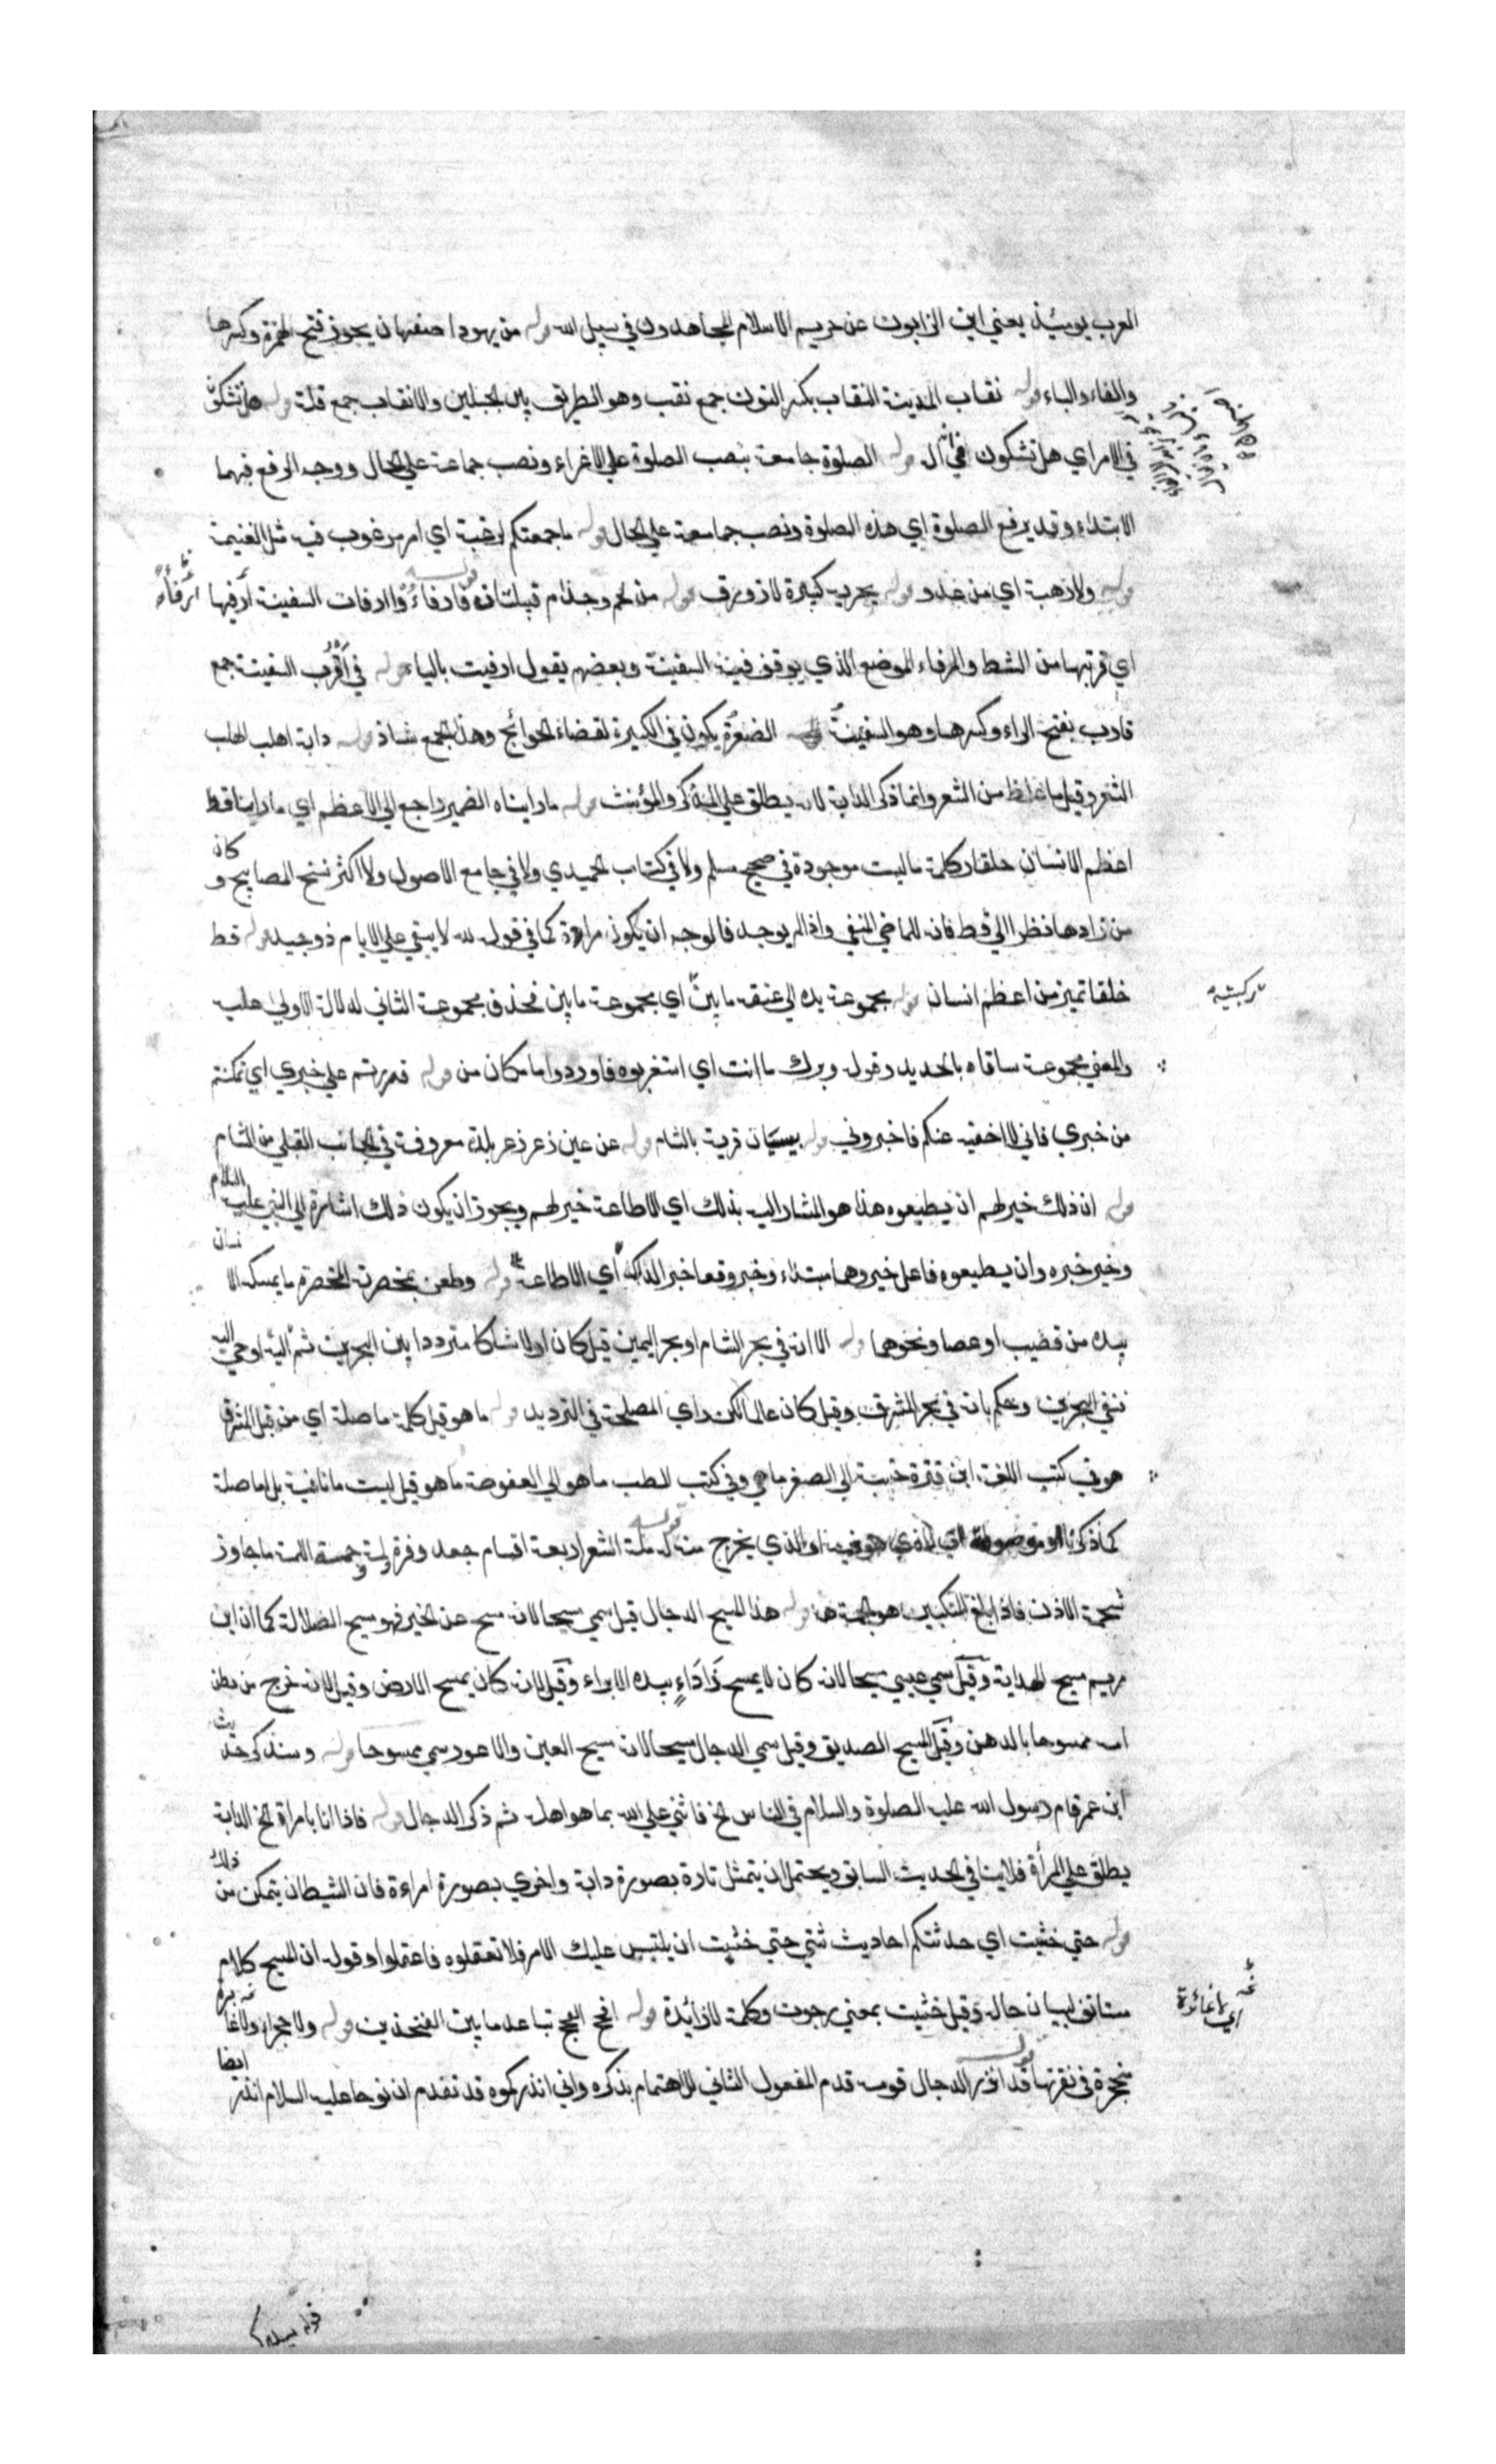 العرب يومئذ يعني اين الذابون عن حريم الاسلام المجاهدون في سبيل الله قوله من يهود اصفهان يجوز فتح الهمزة وكسرها
والفاء والباء قوله نقاب المدينة النقاب بكسر النون جمع نقب وهو الطريق بين الجبلين والانقاب جمع قلة قوله هل تشكون
في الامر اي هل تشكون في اني اله قوله الصلوة جامعة بنصب الصلوة على الاغراء ونصب جماعة على الحال ووجه الرفع فيهما
الابتداء وقد يرفع الصلوة اي هذه الصلوة ونصب جامعة على الحال قوله ما جمعتكم لرغبة اي امر مرغوب فيه مثل الغنيمة
قوله ولا رهبة اي من عدو قوله بحرية كبيرة لا زورق قوله من لخم وجذام قبيلتان قوله فارفاءوا ارفات السفينة ارفيها ارفاء
اي قربتها من الشط والمرفاء الموضع الذي يوقف فيه السفينة وبعضهم يقول ارفيت بالياء قوله في اقرب السفينة جمع
قارب بفتح الراء وكسرها وهو السفينة الصغيرة يكون في الكبيرة لقضاء الحوائج وهذا الجمع شاذ قوله دابة اهلب الهلب
الشعر وقيل ما غلظ من الشعر وانما ذكر الدابة لانه يطلق على المذكر والمؤنث قوله ما راينا‌ه الضمير راجع الى الاعظم اي ما راينا قط
اعظم الانسان خلقا وكلمة ما ليست موجودة في صحيح مسلم ولا في كتاب الحميدي ولا في جامع الاصول ولا اكثر نسخ المصابيح وكان
من زادها نظرا الى قط فانه للماضي المنفي واذا لم يوجد فالوجه ان يكون مرادة كما في قوله لله لا يبقي على الايام ذو حيد قوله قط
خلقا تميز من اعظم انسان قوله مجموعة يده الى عنقه ما بين اي مجموعة ما بين فحذف مجموعة الثاني لدلالة الاولى عليه
ركبتيه
والمعنى مجموعة ساقاه بالحديد وقوله ويرك ما انت اي استغربوه فاوردوا ما مكان من قوله قدرتم على خبري اي تمكنتم
من خبري فاني لا اخفيه عنكم فاخبروني قوله بيسان قرية بالشام قوله عن عين زعر زعر بلدة معروفة في الجانب القبلي من الشام
قوله ان ذلك خير لهم ان يطيعوه هذا هو المشار اليه بذلك اي الاطاعة خير لهم ويجوز ان يكون ذلك اشارة الى النبي عليه السلام
وخير خبره وان يطيعوه فاعل خير وهما مبتداء وخبر وقعا خبرا لذلك اي الاطاعة قوله وطعن بمخصرته المخصرة ما يمسك الانسان
بيده من قضيب او عصا ونحوهما قوله الا انه في بحر الشام او بحر اليمن قيل كان اولا شاكا مترددا بين البحرين ثم اوحي اليه
نفي البحرين وحكم بانه في بحر المشرق وقيل كان عالما لكن راي المصلحة في الترديد قوله ما هو قيل كلمة ما صلة اي من قبل المشرق
هو في كتب اللغة ابن قترة حية الى الصغر ما هي وفي كتب الطب ما هو الى العفوصة ما هو قيل ليست ما نافية بل ما صلة
كما ذكرنا او موصولة اي الذي هو فيه او الذي يخرج منه قوله لمة الشعر اربعة اقسام جعد وفرة ولمة وجمة اللمة ما جاوز
شحمة الاذن فاذا بلغ المنكبين هو الجمة قوله هذا المسيح الدجال قيل سمي مسيحا لانه مسح عن الخير فهو مسيح الضلالة كما ان ابن
مريم مسيح الهداية وقيل سمي عيسى مسيحا لانه كان لا يمسح ذا داء بيده الا براء وقيل لانه كان يمسح الارض وقيل لانه خرج من بطن
امه ممسوحا بالدهن وقيل المسيح الصديق وقيل سمي الدجال مسيحا لانه مسيح العين والاعور سمي ممسوحا قوله وسنذكر حديث
ابن عمر قام رسول الله عليه الصلوة والسلام في الناس الخ فاثنى على الله بما هو اهله ثم ذكر الدجال قوله فاذا انا بامراة الخ الدابة
يطلق على المرأة فلا ينافي الحديث السابق ويحتمل ان يتمثل تارة بصورة دابة واخرى بصورة امراءة فان الشيطان يتمكن من ذلك
قوله حتى خشيت اي حدثتكم احاديث شتى حتى خشيت ان يلتبس عليك الامر فلا تعقلوه فاعقلوا وقوله ان المسيح كلام
مستانف لبيان حاله وقيل خشيت بمعنى رجوت وكلمة لا زائدة قوله افحج الفحج تباعد ما بين الفخذين قوله ولا حجراء ولا غائرة
اي لا غائرة
منحجرة في نقرتها قوله قد انذر الدجال قومه قدم المفعول الثاني للاهتمام بذكره واني انذركموه قد تقدم ان نوحا عليه السلام انذر ايضا